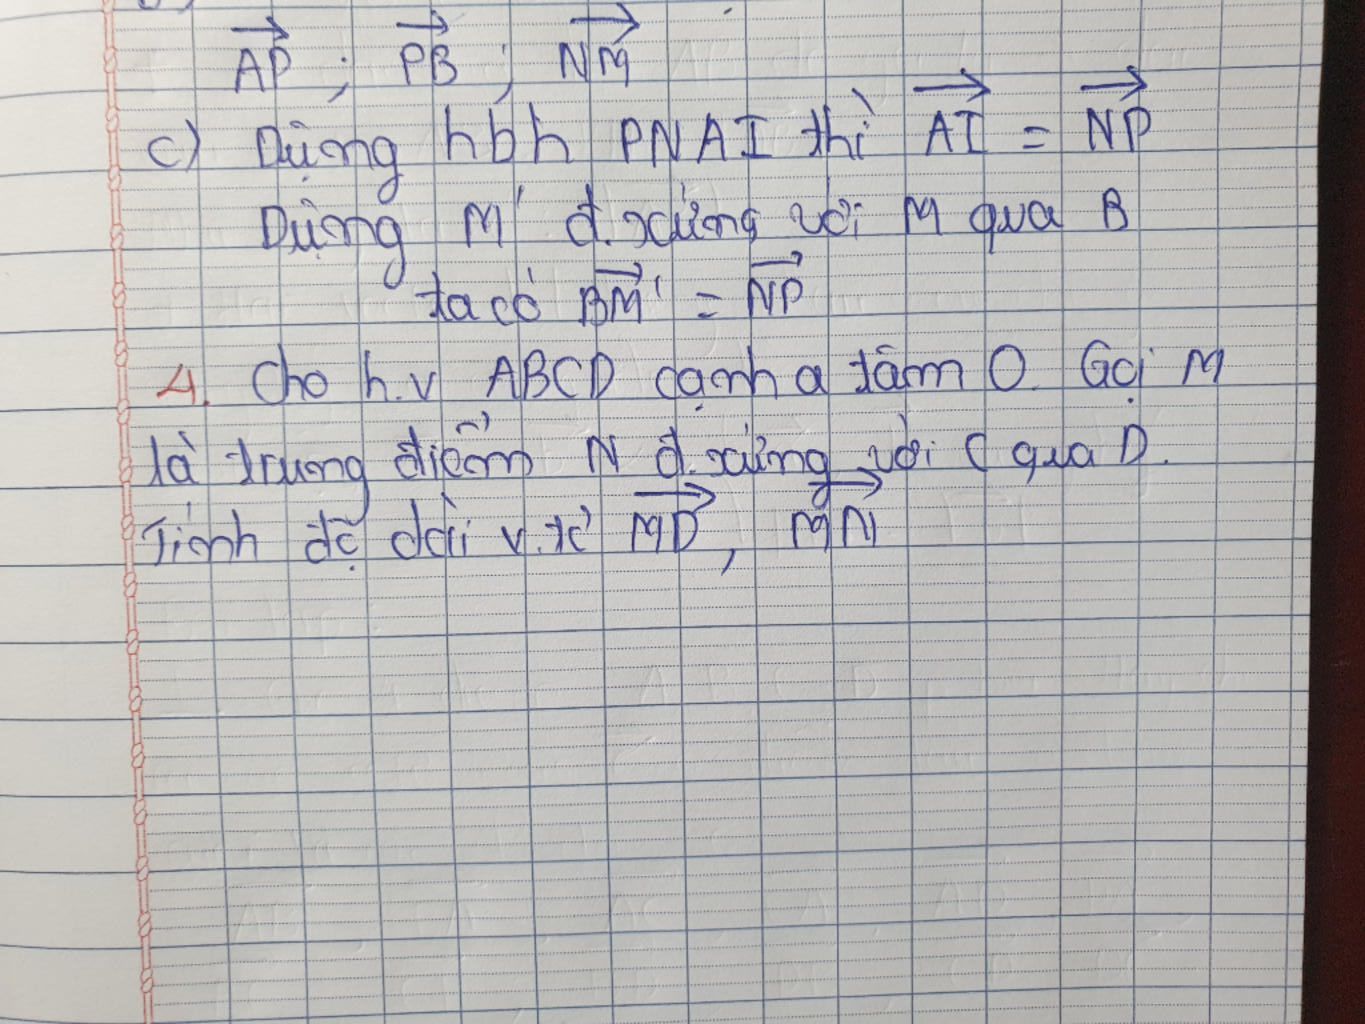 AP ; PB ; NM
c) Dựng hbh PNAI thì AI = NP
Dựng M' đ.xứng với M qua B
ta có BM' = NP
4. Cho h.v ABCD cạnh a tâm O. Gọi M
là trung điểm N đ.xứng với C qua D.
Tính độ dài v.tơ MD, MN